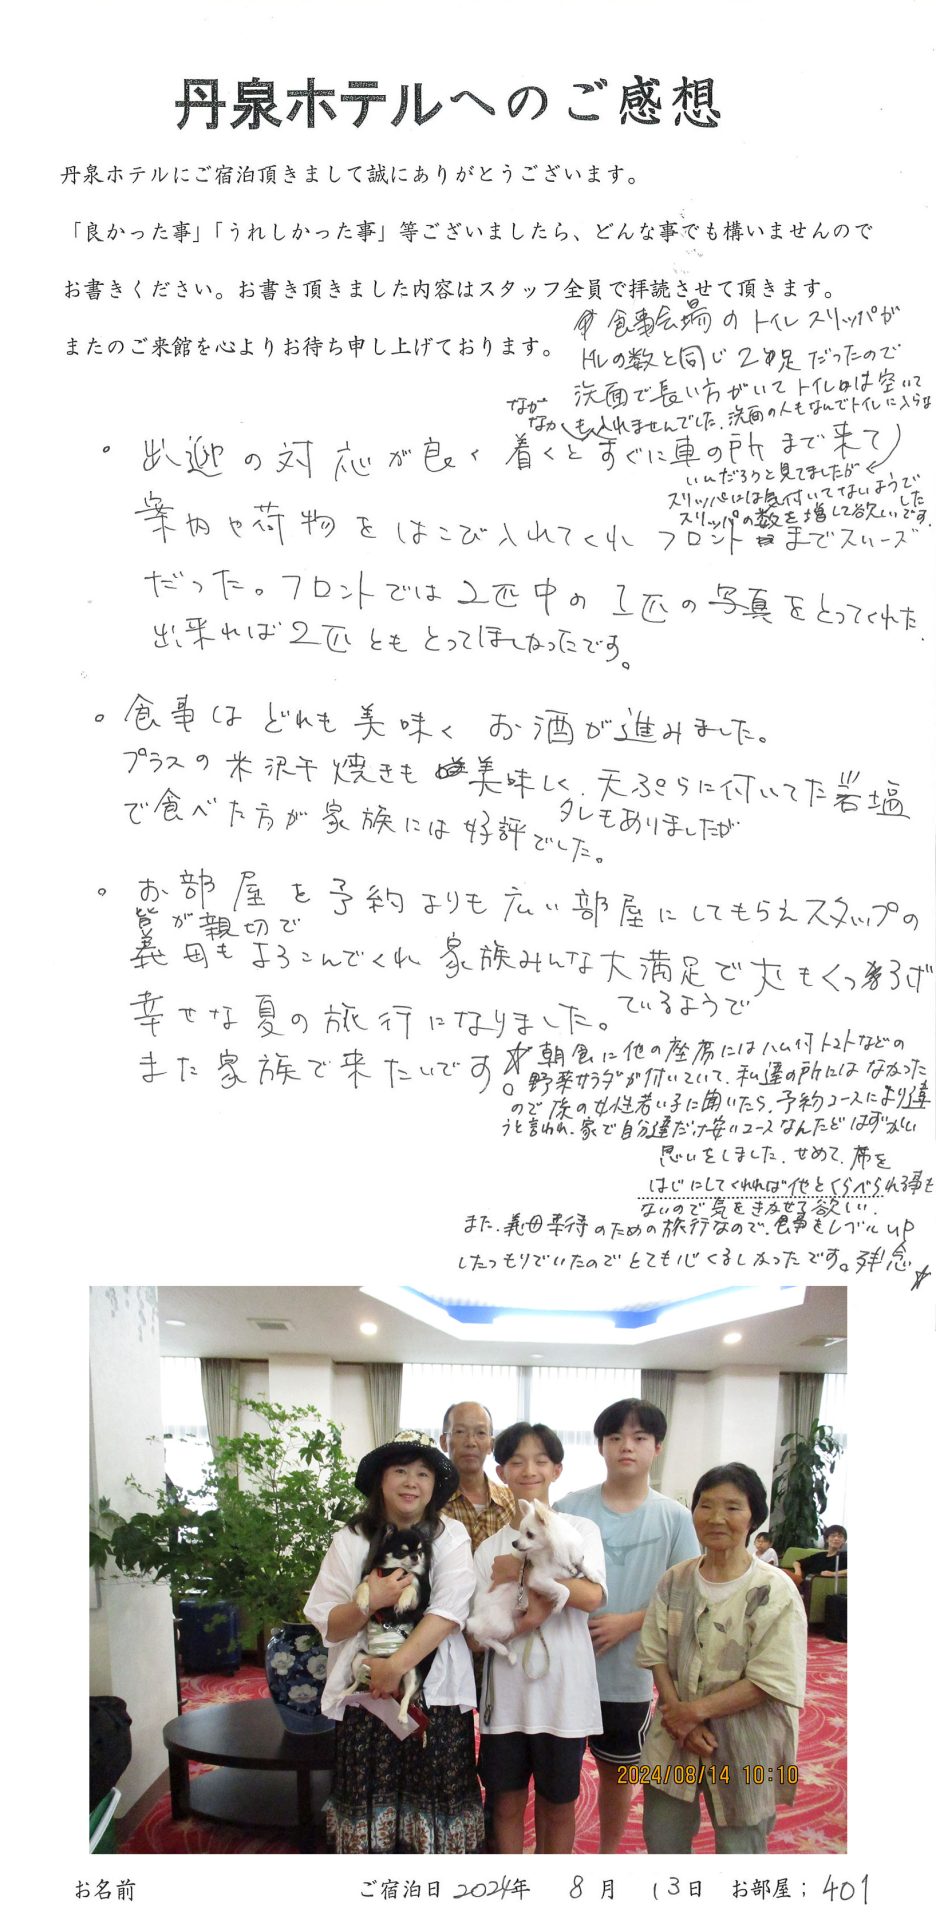 丹泉ホテルへのご感想
丹泉ホテルにご宿泊頂きまして誠にありがとうございます。
「良かった事」「うれしかった事」等ございましたら、どんな事でも構いませんので
お書きください。お書き頂きました内容はスタッフ全員で拝読させて頂きます。
またのご来館を心よりお待ち申し上げております。
食事会場のトイレスリッパが
トイレの数と同じ2足だったので
洗面で長い方がいてトイレは空いて
なかなか入れませんでした。洗面の人もなんでトイレに入らな
いんだろうと見てましたが
スリッパには気付いてないようで
した
スリッパの数を増して欲しいです。
。出迎の対応が良く着くとすぐに車の所まで来て
案内や荷物をはこび入れてくれフロントまでスムーズ
だった。フロントでは2匹中の1匹の写真をとってくれた。
出来れば2匹ともとってほしかったです。
。食事はどれも美味くお酒が進みました。
プラスの米沢牛焼きも美味しく、天ぷらに付いてた岩塩
で食べた方が家族には好評でした。
タレもありましたが
。お部屋を予約よりも広い部屋にしてもらえスタッフの
皆が親切で
義母もよろこんでくれ家族みんな大満足で犬もくつろげ
ているようで
幸せな夏の旅行になりました。
また家族で来たいです。
☆朝食に他の座席にはハム付トマトなどの
野菜サラダが付いていて、私達の所にはなかった
ので係の女性若い子に聞いたら、予約コースにより違
うと言われ、家で自分達だけ安いコースなんだとはずかしい
思いをしました。せめて、席を
はじにしてくれれば他とくらべられる事も
ないので気をきかせて欲しい。
また、義母孝行のための旅行なので、食事をレベルup
したつもりでいたのでとても心くるしかったです。残念☆
2024/08/14 10:10
お名前 ご宿泊日 2024年 8月 13日 お部屋; 401